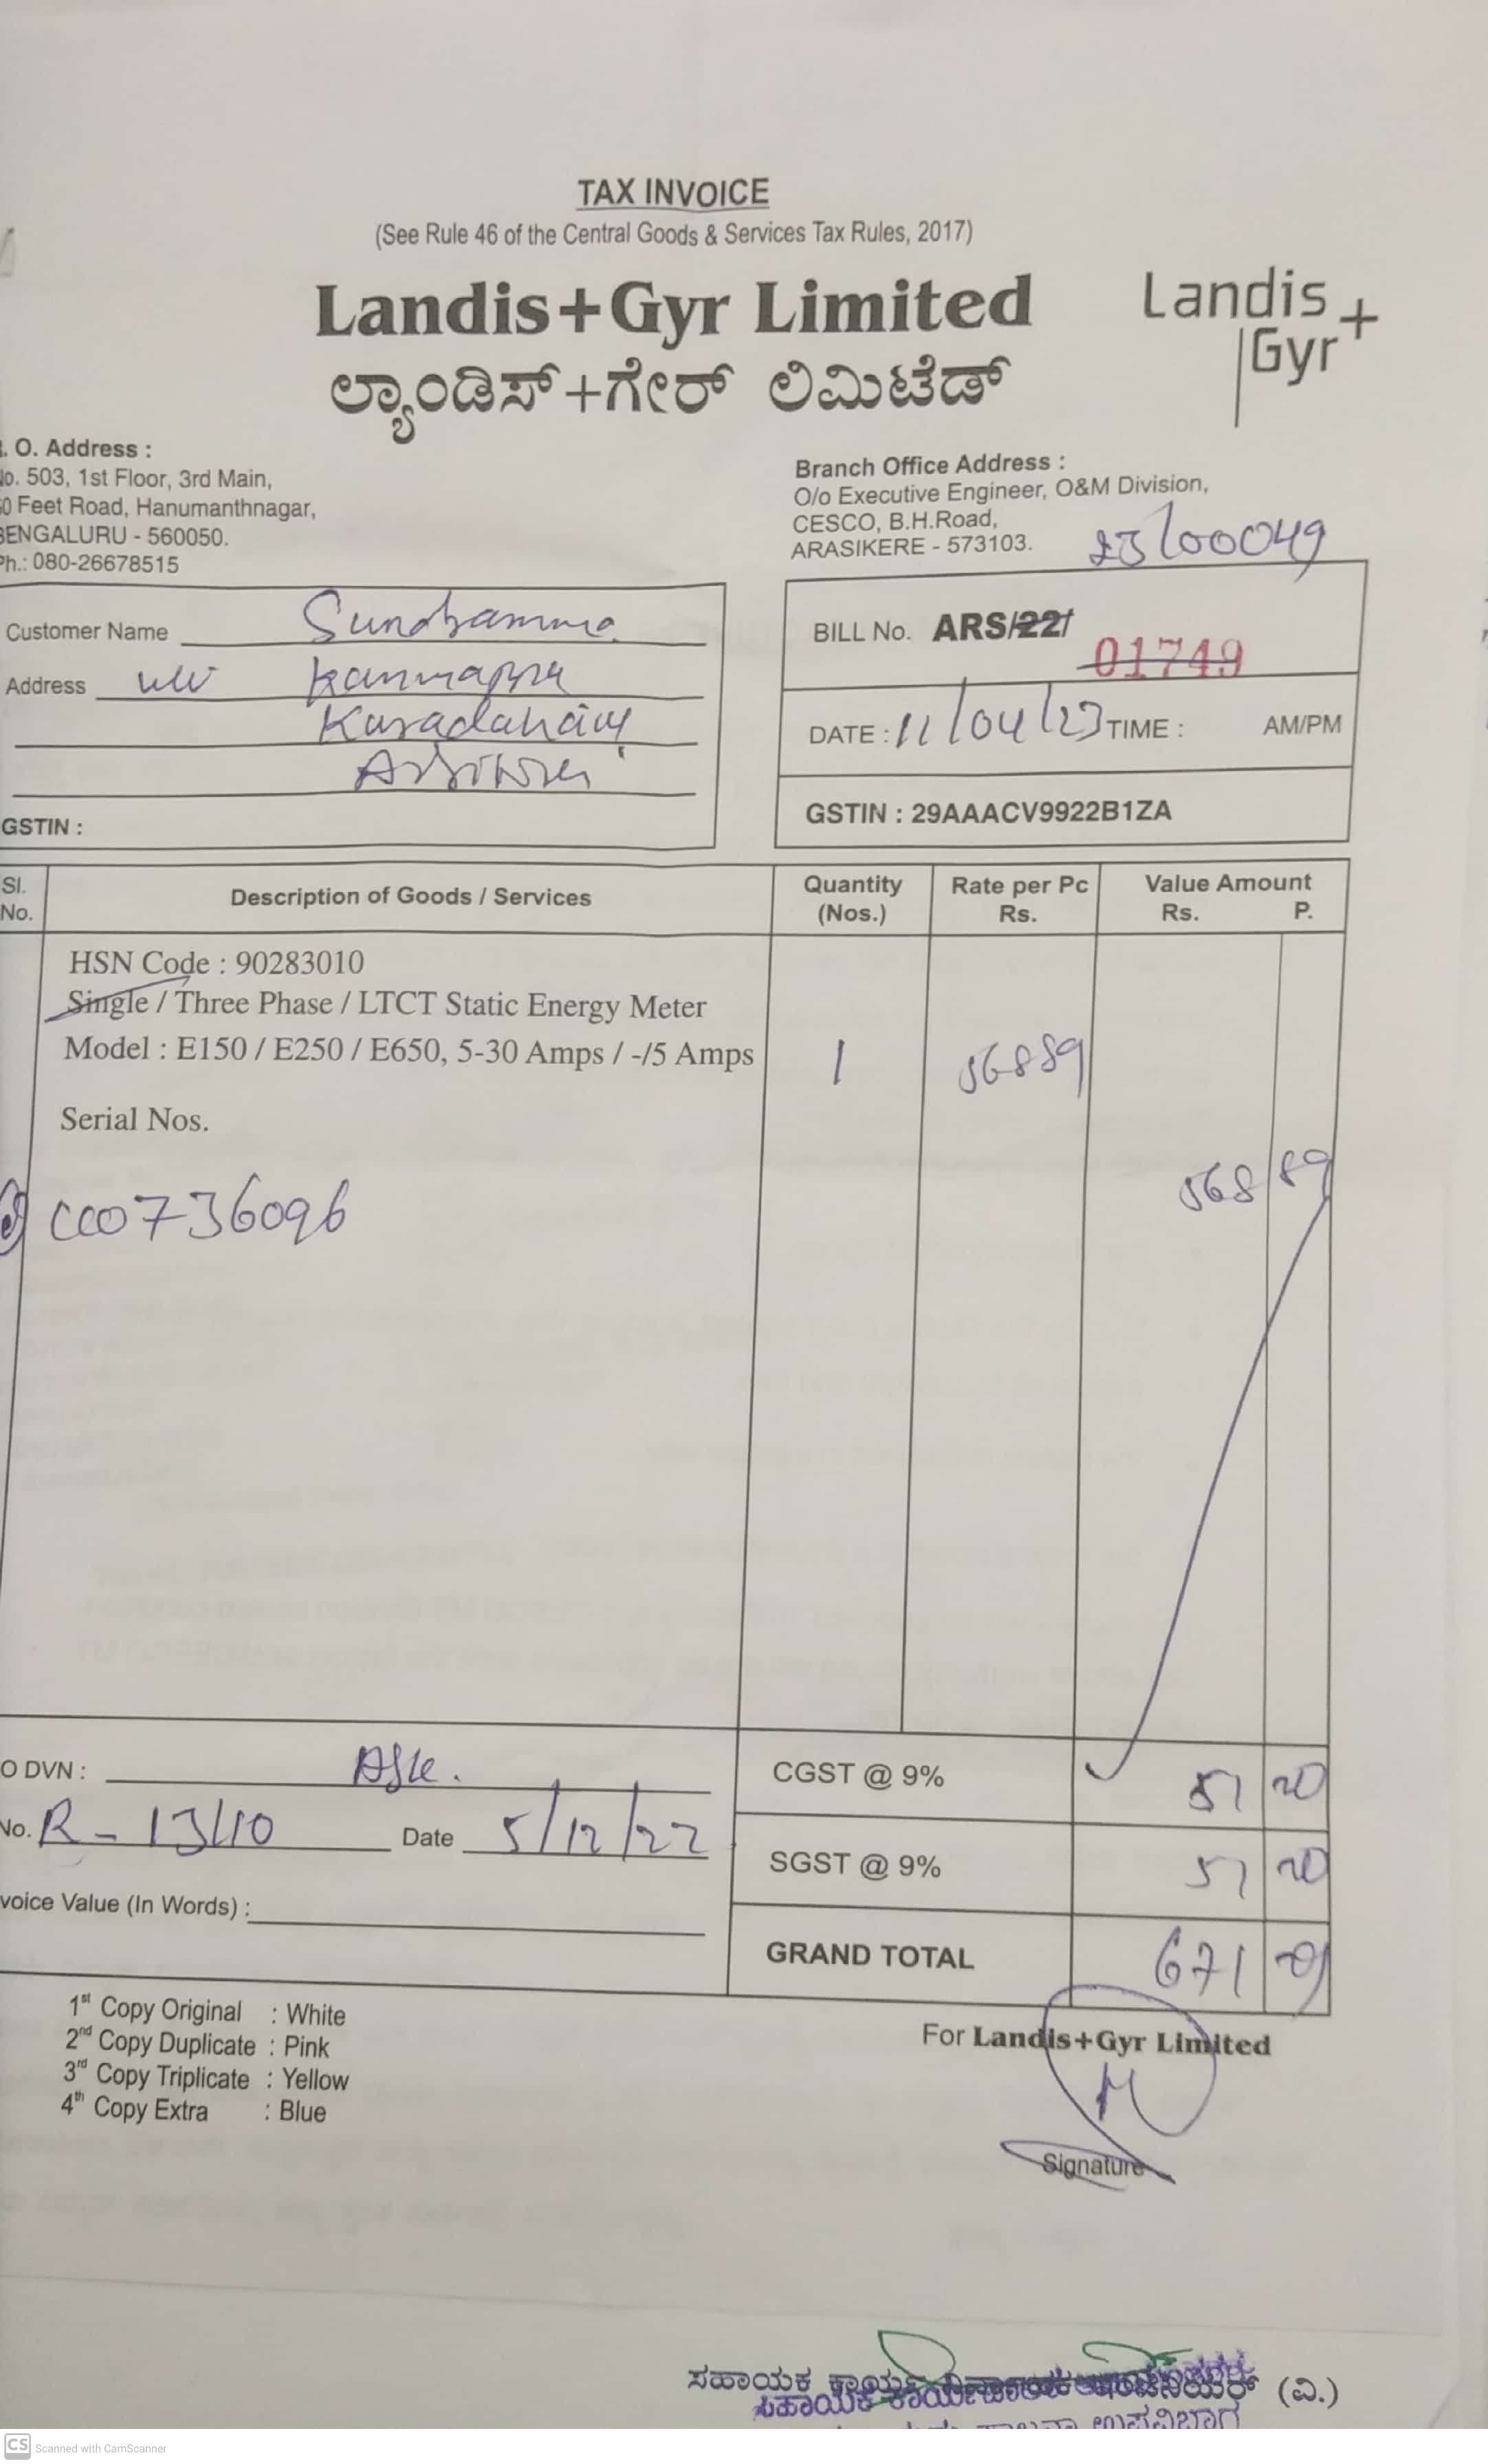 TAX INVOICE
(See Rule 46 of the Central Goods & Services Tax Rules, 2017)
Landis+Gyr Limited
ಲ್ಯಾಂಡಿಸ್+ಗೇರ್ ಲಿಮಿಟೆಡ್
Landis+
Gyr
. O. Address :
No. 503, 1st Floor, 3rd Main,
0 Feet Road, Hanumanthnagar,
BENGALURU - 560050.
Ph.: 080-26678515
Branch Office Address :
O/o Executive Engineer, O&M Division,
CESCO, B.H.Road,
ARASIKERE - 573103.
23/00049
Customer Name
Address
Kanmappa
GSTIN :
BILL No. ARS/22/
01749
DATE : 11/04/23 TIME : AM/PM
GSTIN : 29AAACV9922B1ZA
Sl. No. Description of Goods / Services Quantity (Nos.) Rate per Pc Rs. Value Amount Rs. P.
HSN Code : 90283010
Single / Three Phase / LTCT Static Energy Meter
Model : E150 / E250 / E650, 5-30 Amps / -/5 Amps 1 56889
Serial Nos.
568 89
7736096
O DVN : Aske.
No. R - 13110 Date 5/12/22
voice Value (In Words) :
CGST @ 9% 51 20
SGST @ 9% 51 20
GRAND TOTAL 671
1st Copy Original : White
2nd Copy Duplicate : Pink
3rd Copy Triplicate : Yellow
4th Copy Extra : Blue
For Landis+Gyr Limited
Signature
ಸಹಾಯಕ ಕಾರ್ಯ (ವಿ.)
ಉಪವಿಭಾಗ
CS Scanned with CamScanner